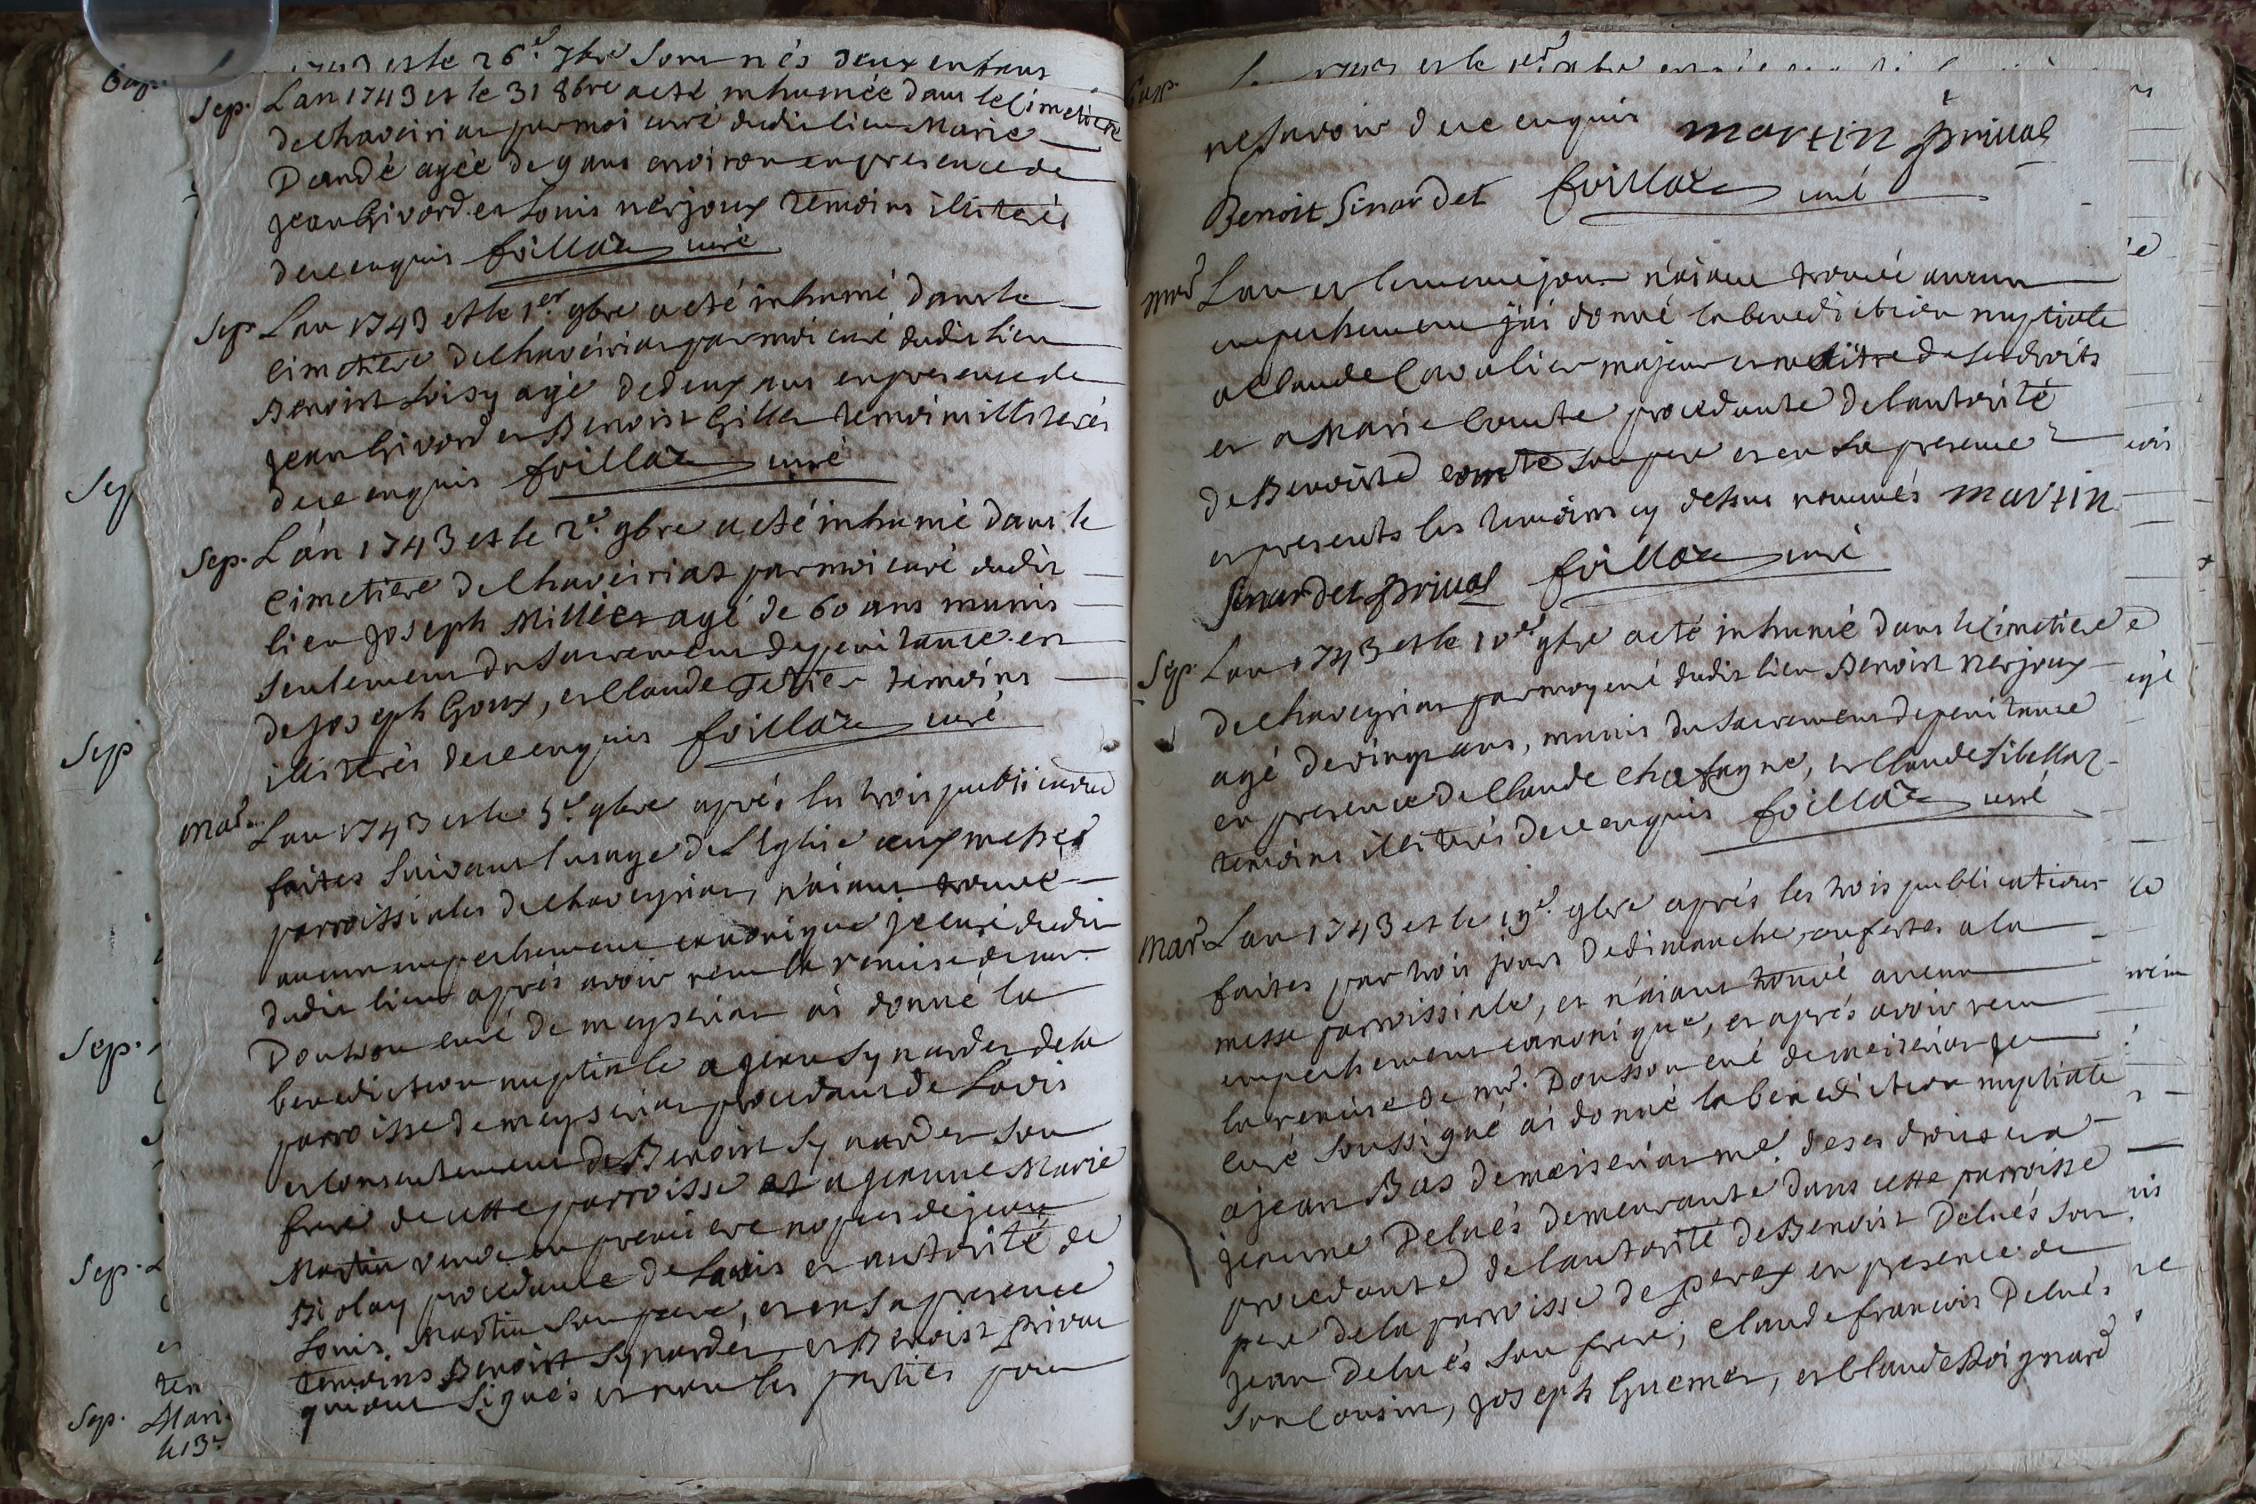 1743 et le 26e. 7bre sont nés deux enfans
Bap.
Sep. L'an 1743 et le 31 8bre a été inhumée dans le cimetiere
de chaveiriat par moi curé dudit lieu Marie
Dandé agée de 9 ans environ en presence de
jean Givord et Louis nerjoux temoins illiterés
de ce enquis foillaz curé
Sep. L'an 1743 et le 1er. 9bre a été inhumé dans le
cimetiere de chaveiriat par moi curé dudit lieu
Benoist Loisy agé de deux ans en presence de
jean Givord et Benoist Gilla temoins illiterés
de ce enquis foillaz curé
Sep. L'an 1743 et le 2e. 9bre a été inhumé dans le
cimetiere de chaveiriat par moi curé dudit
lieu joseph Millier agé de 60 ans munis
seulement du sacrement de penitance en
de joseph Goux, et Claude tetier temoins
illiterés de ce enquis foillaz curé
mar. L'an 1743 et le 5e. 9bre aprés les trois publications
faites suivant l'usage de l'Eglise aux messes
parroissiales de chaveyriat, n'aiant trouvé
aucun empechement canonique je curé dudit
dudit lieu aprés avoir reçu la remise de mr.
Dousson curé de meyseriat ai donné la
benediction nuptiale a jean Synardet de la
parroisse de meyseriat procedant de l'avis
et consentement de Benoist Synardet son
frere de cette parroisse et a jeanne Marie
Martin veuve en premiere nopces de jean
Biolay procedante de l'avis et autorité de
Louis Martin son pere, et en sa presence
temoins Benoist Synardet et Benoist privat
qui ont signés et non les parties pour
Sep
Sep
Sep.
Sep.
tem
Sep. Mari
le 13e
Bap.
ne savoir de ce enquis martin privat
Benoit Sinardet foillaz curé
mar L'an et le meme jour n'aiant trouvé aucun
empechement j'ai donné la benediction nuptiale
a Claude Cavalier majeur et maitre de ses droits
et a Marie Comte procedante de l'autorité
de Benoist comte son pere et en sa presence
et presents les temoins cy dessus nommés martin
sinardet privat foillaz curé
Sep. L'an 1743 et le 10e 9bre a été inhumé dans le cimetiere
de chaveyriat par moy curé dudit lieu Benoist nerjoux
agé de vingt ans, munis du sacrement de penitance
en presence de Claude chatagne, et Claude sibellaz
temoins illiterés de ce enquis foillaz curé
mar. L'an 1743 et le 19e. 9bre aprés les trois publications
faites par trois jours de dimanche, ou festes a la
messe parroissiale, et n'aiant trouvé aucun
empechement canonique, et aprés avoir reçu
la remise de mr. Dousson curé de meiseriat je
curé soussigné ai donné la benediction nuptiale
a jean Bas de meiseriat me. de ses droits et a
jeanne Delués demeurante dans cette parroisse
procedante de l'autorité de Benoist Delués son
pere de la parroisse de perex en presence de
jean Delués son frere; claude francois Delués
son Cousin, joseph Guemer, et Claude Roignard